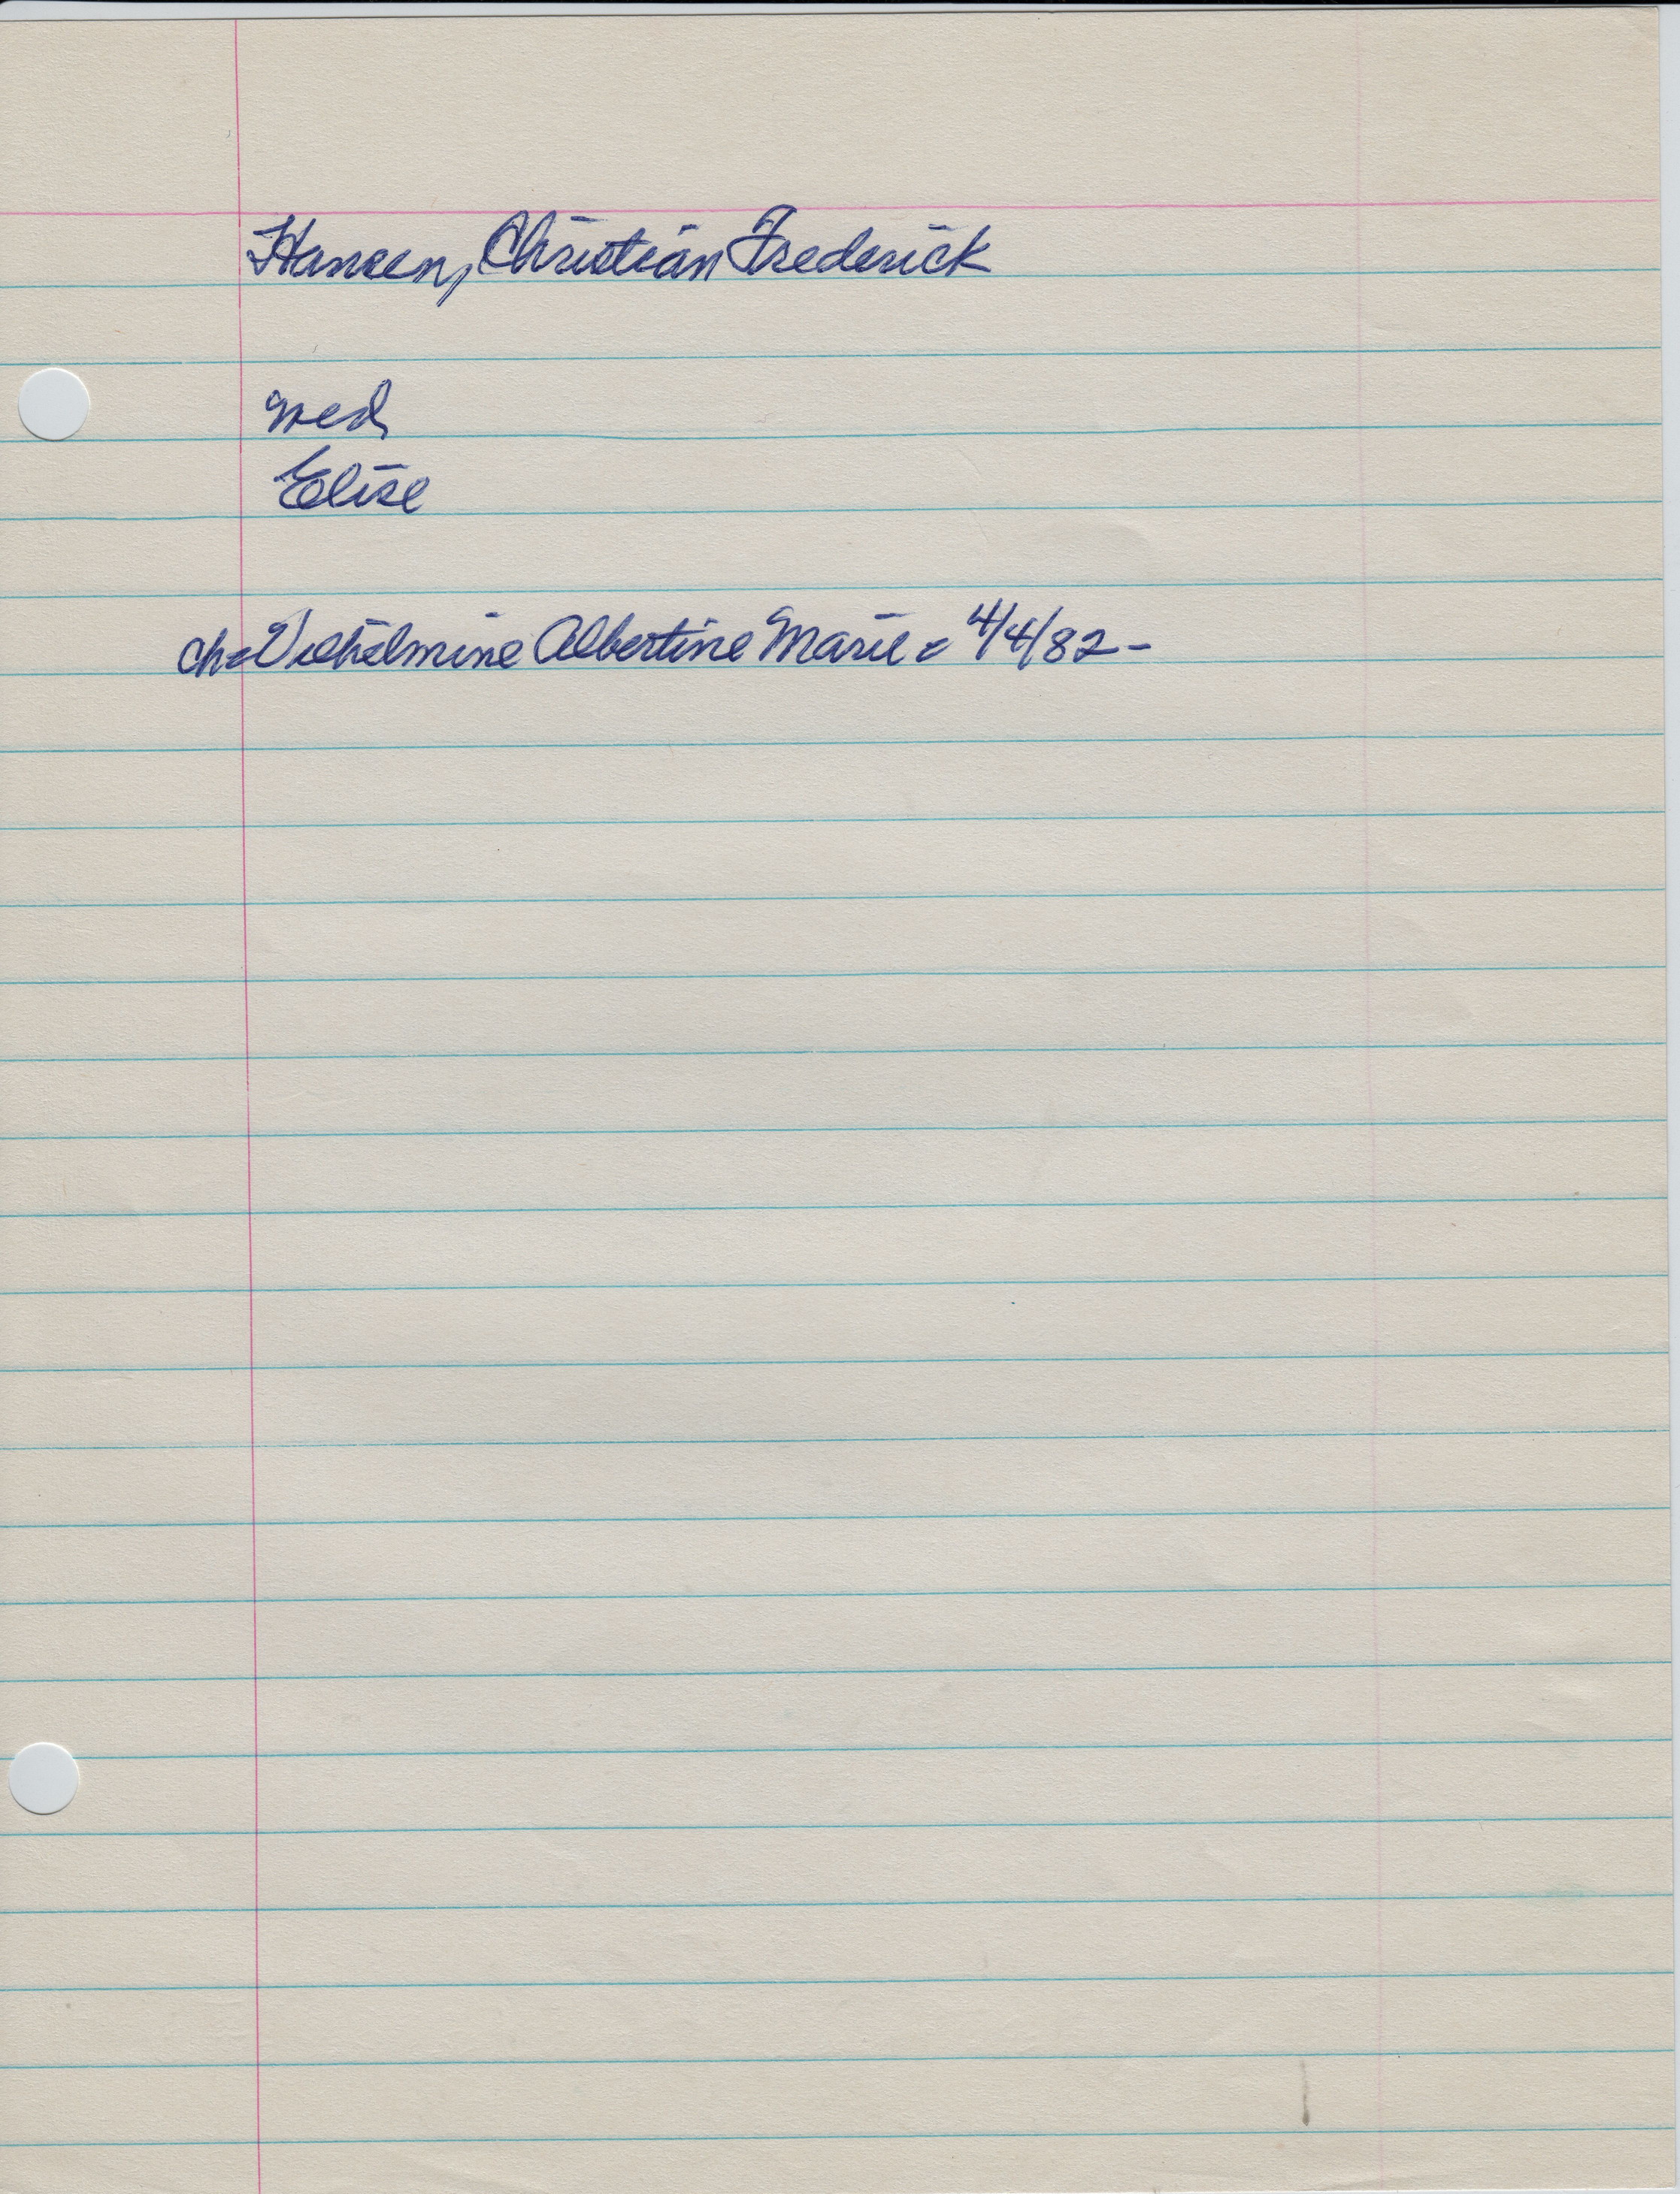 Hansen, Christian Frederick
wed
Elise
ch= Vilhelmine Albertine Marie = 4/4/82 -